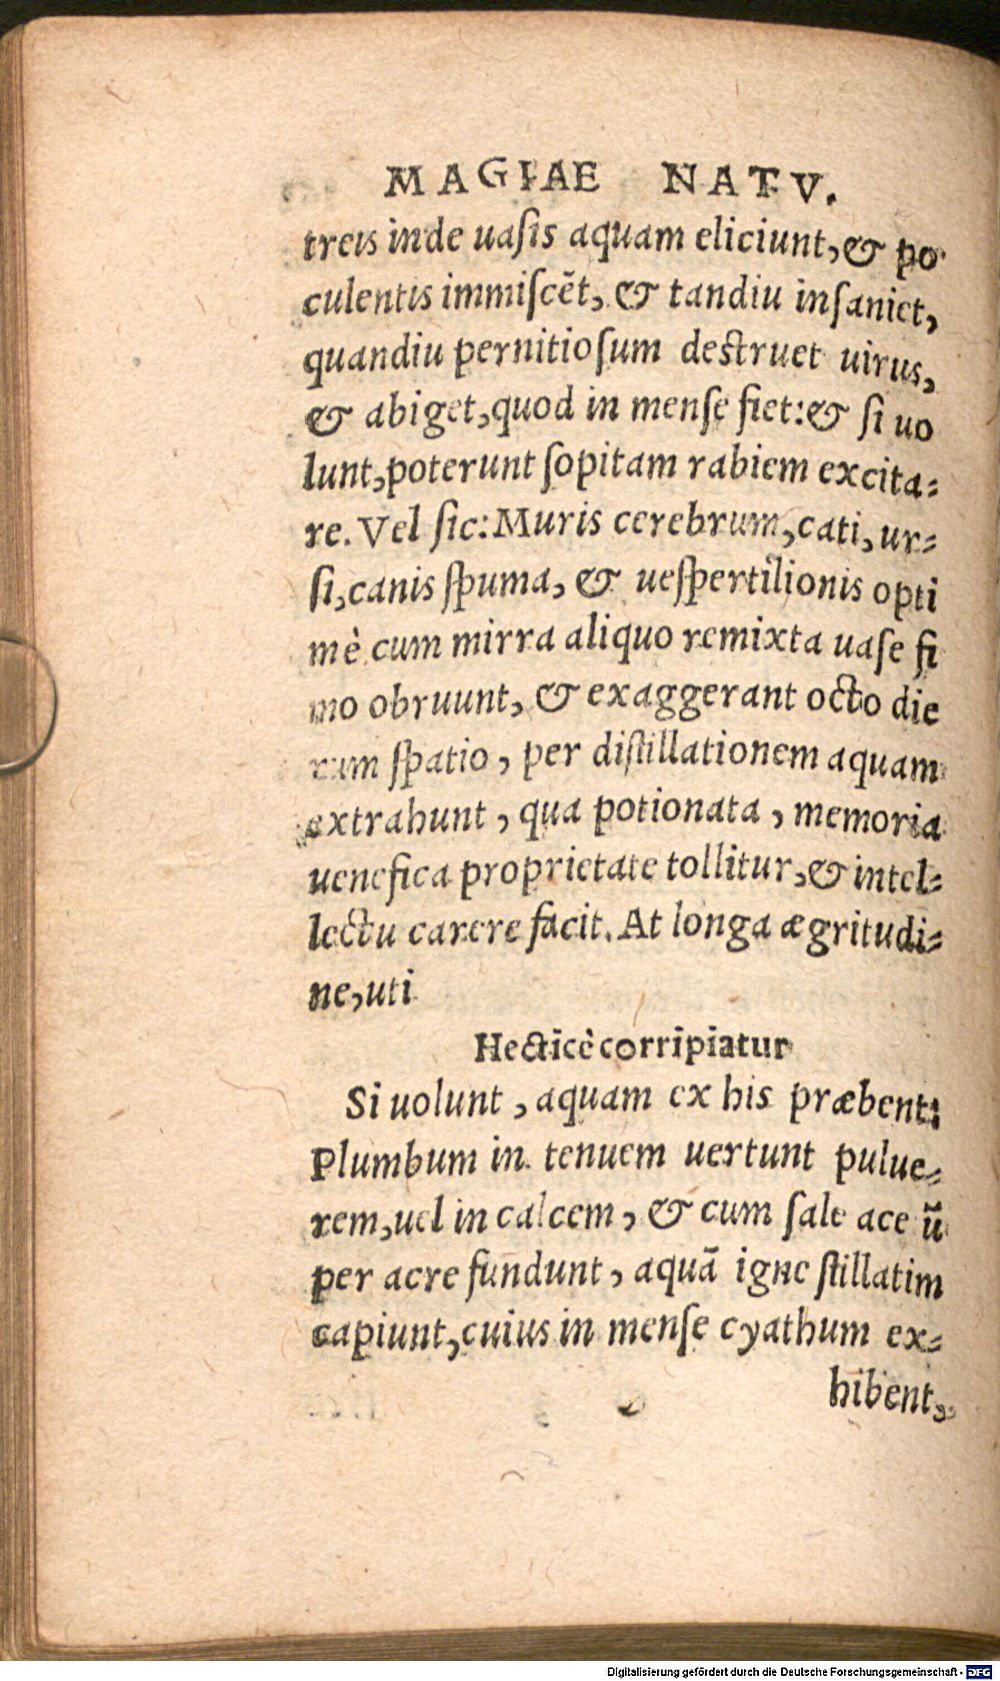 MAGIAE NATV.
treis inde uasis aquam eliciunt, & po
culentis immiscēt, & tandiu insaniet,
quandiu pernitiosum destruet uirus,
& abiget, quod in mense fiet: & si uo
lunt, poterunt sopitam rabiem excita-
re. Vel sic: Muris cerebrum, cati, ur-
si, canis spuma, & uespertilionis opti
mè cum mirra aliquo remixta uase fi
mo obruunt, & exaggerant octo die
rum spatio, per distillationem aquam
extrahunt, qua potionata, memoria
uenefica proprietate tollitur, & intel-
lectu carere facit. At longa ægritudi-
ne, uti
Hecticè corripiatur
Si uolunt, aquam ex his præbent:
Plumbum in tenuem uertunt pulue-
rem, uel in calcem, & cum sale ace ū
per acre fundunt, aquā igne stillatim
capiunt, cuius in mense cyathum ex-
hibent,
Digitalisierung gefördert durch die Deutsche Forschungsgemeinschaft - DFG